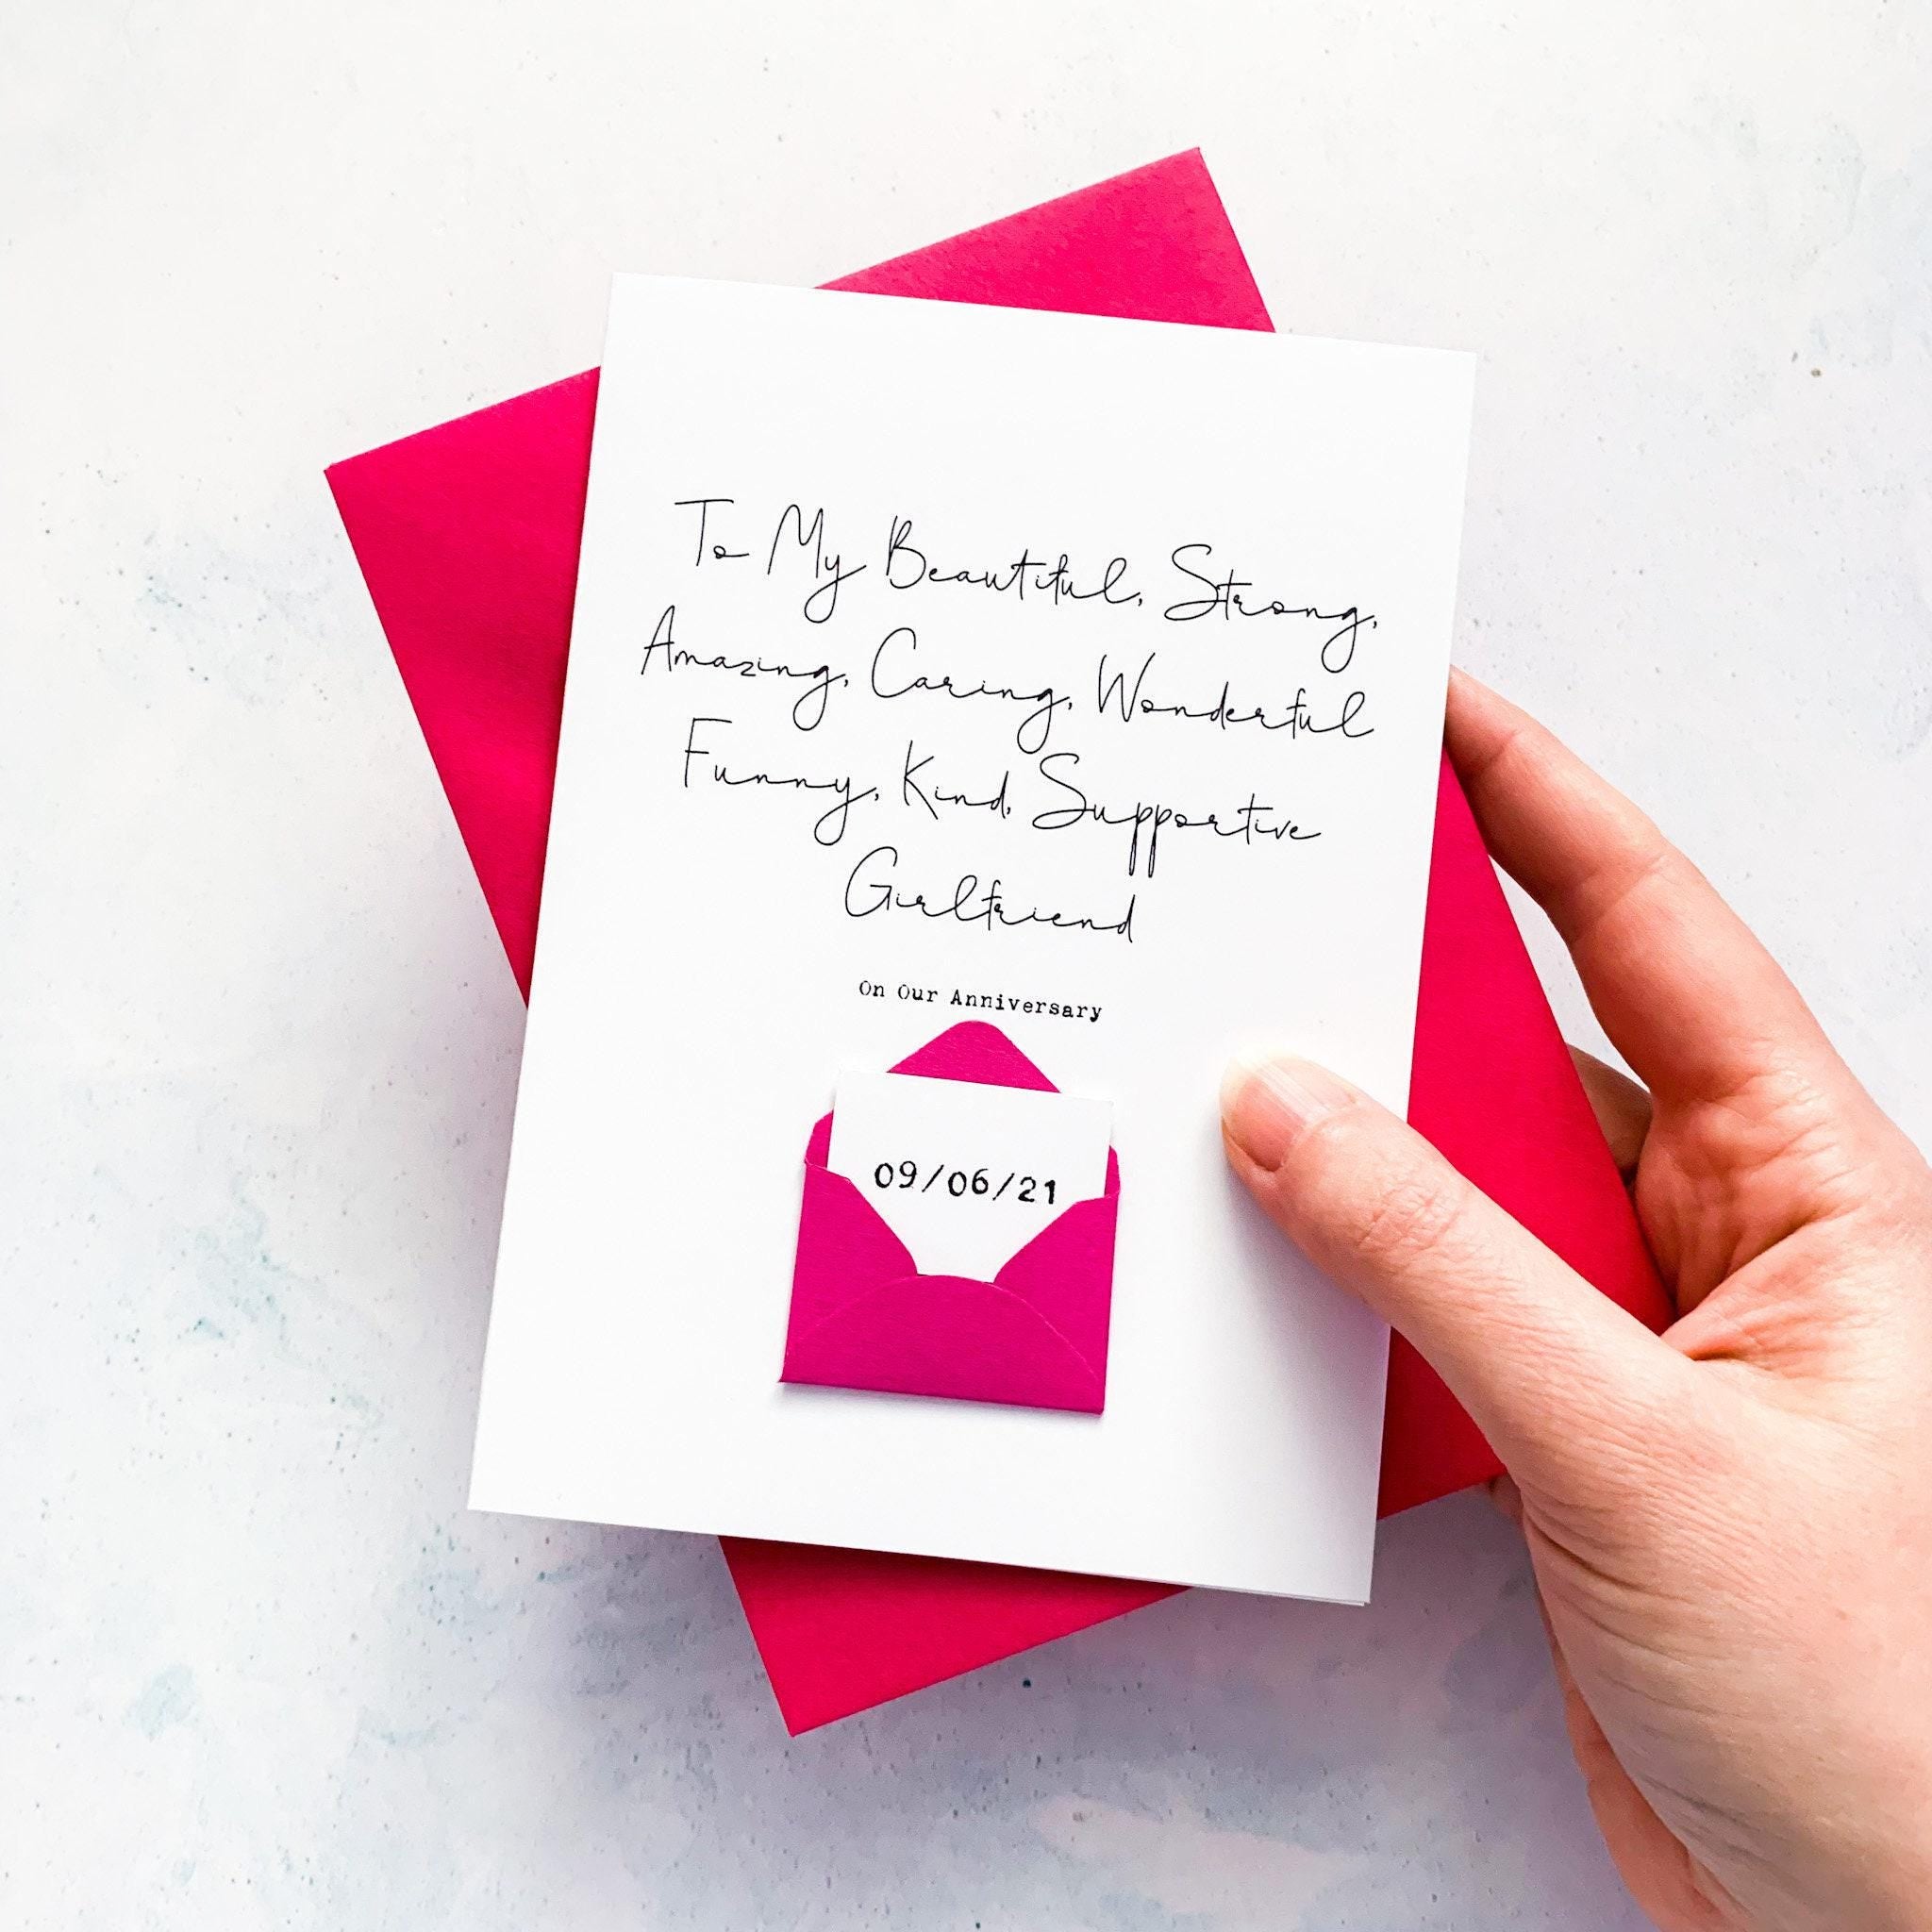 To My Beautiful, Strong,
Amazing, Caring, Wonderful
Funny, Kind, Supportive
Girlfriend
On Our Anniversary
09/06/21